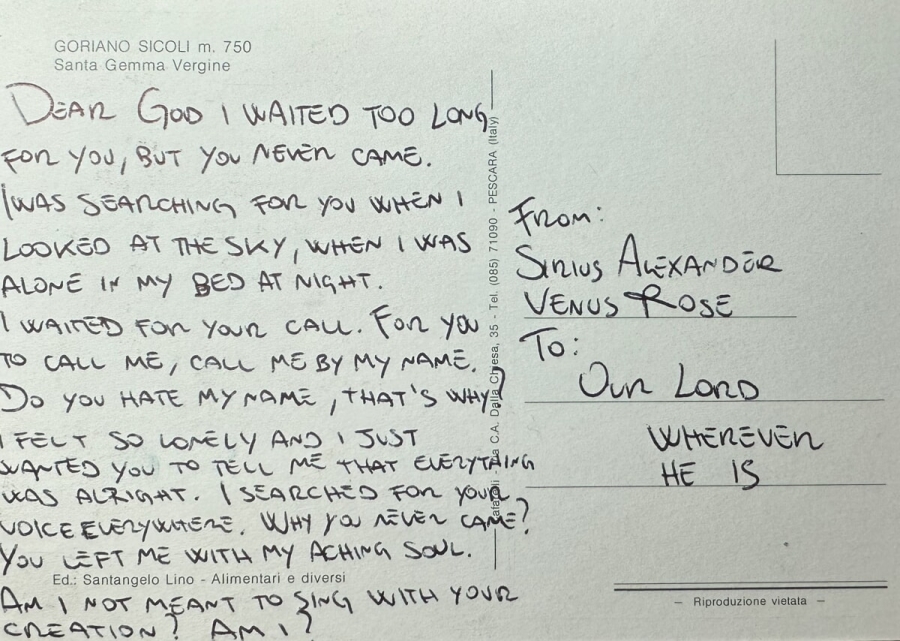 GORIANO SICOLI m. 750
Santa Gemma Vergine
DEAR GOD I WAITED TOO LONG
FOR YOU, BUT YOU NEVER CAME.
I WAS SEARCHING FOR YOU WHEN I
LOOKED AT THE SKY, WHEN I WAS
ALONE IN MY BED AT NIGHT.
I WAITED FOR YOUR CALL. FOR YOU
TO CALL ME, CALL ME BY MY NAME.
DO YOU HATE MY NAME, THAT'S WHY?
I FELT SO LONELY AND I JUST
WANTED YOU TO TELL ME THAT EVERYTHING
WAS ALRIGHT. I SEARCHED FOR YOUR
VOICE EVERYWHERE. WHY YOU NEVER CAME?
YOU LEFT ME WITH MY ACHING SOUL.
Ed.: Santangelo Lino - Alimentari e diversi
AM I NOT MEANT TO SING WITH YOUR
CREATION? AM I?
C.A. Dalla Chiesa, 35 - Tel. (085) 71090 - PESCARA (Italy)
FROM:
SIRIUS ALEXANDER
VENUS ROSE
TO:
OUR LORD
WHEREVER
HE IS
– Riproduzione vietata –